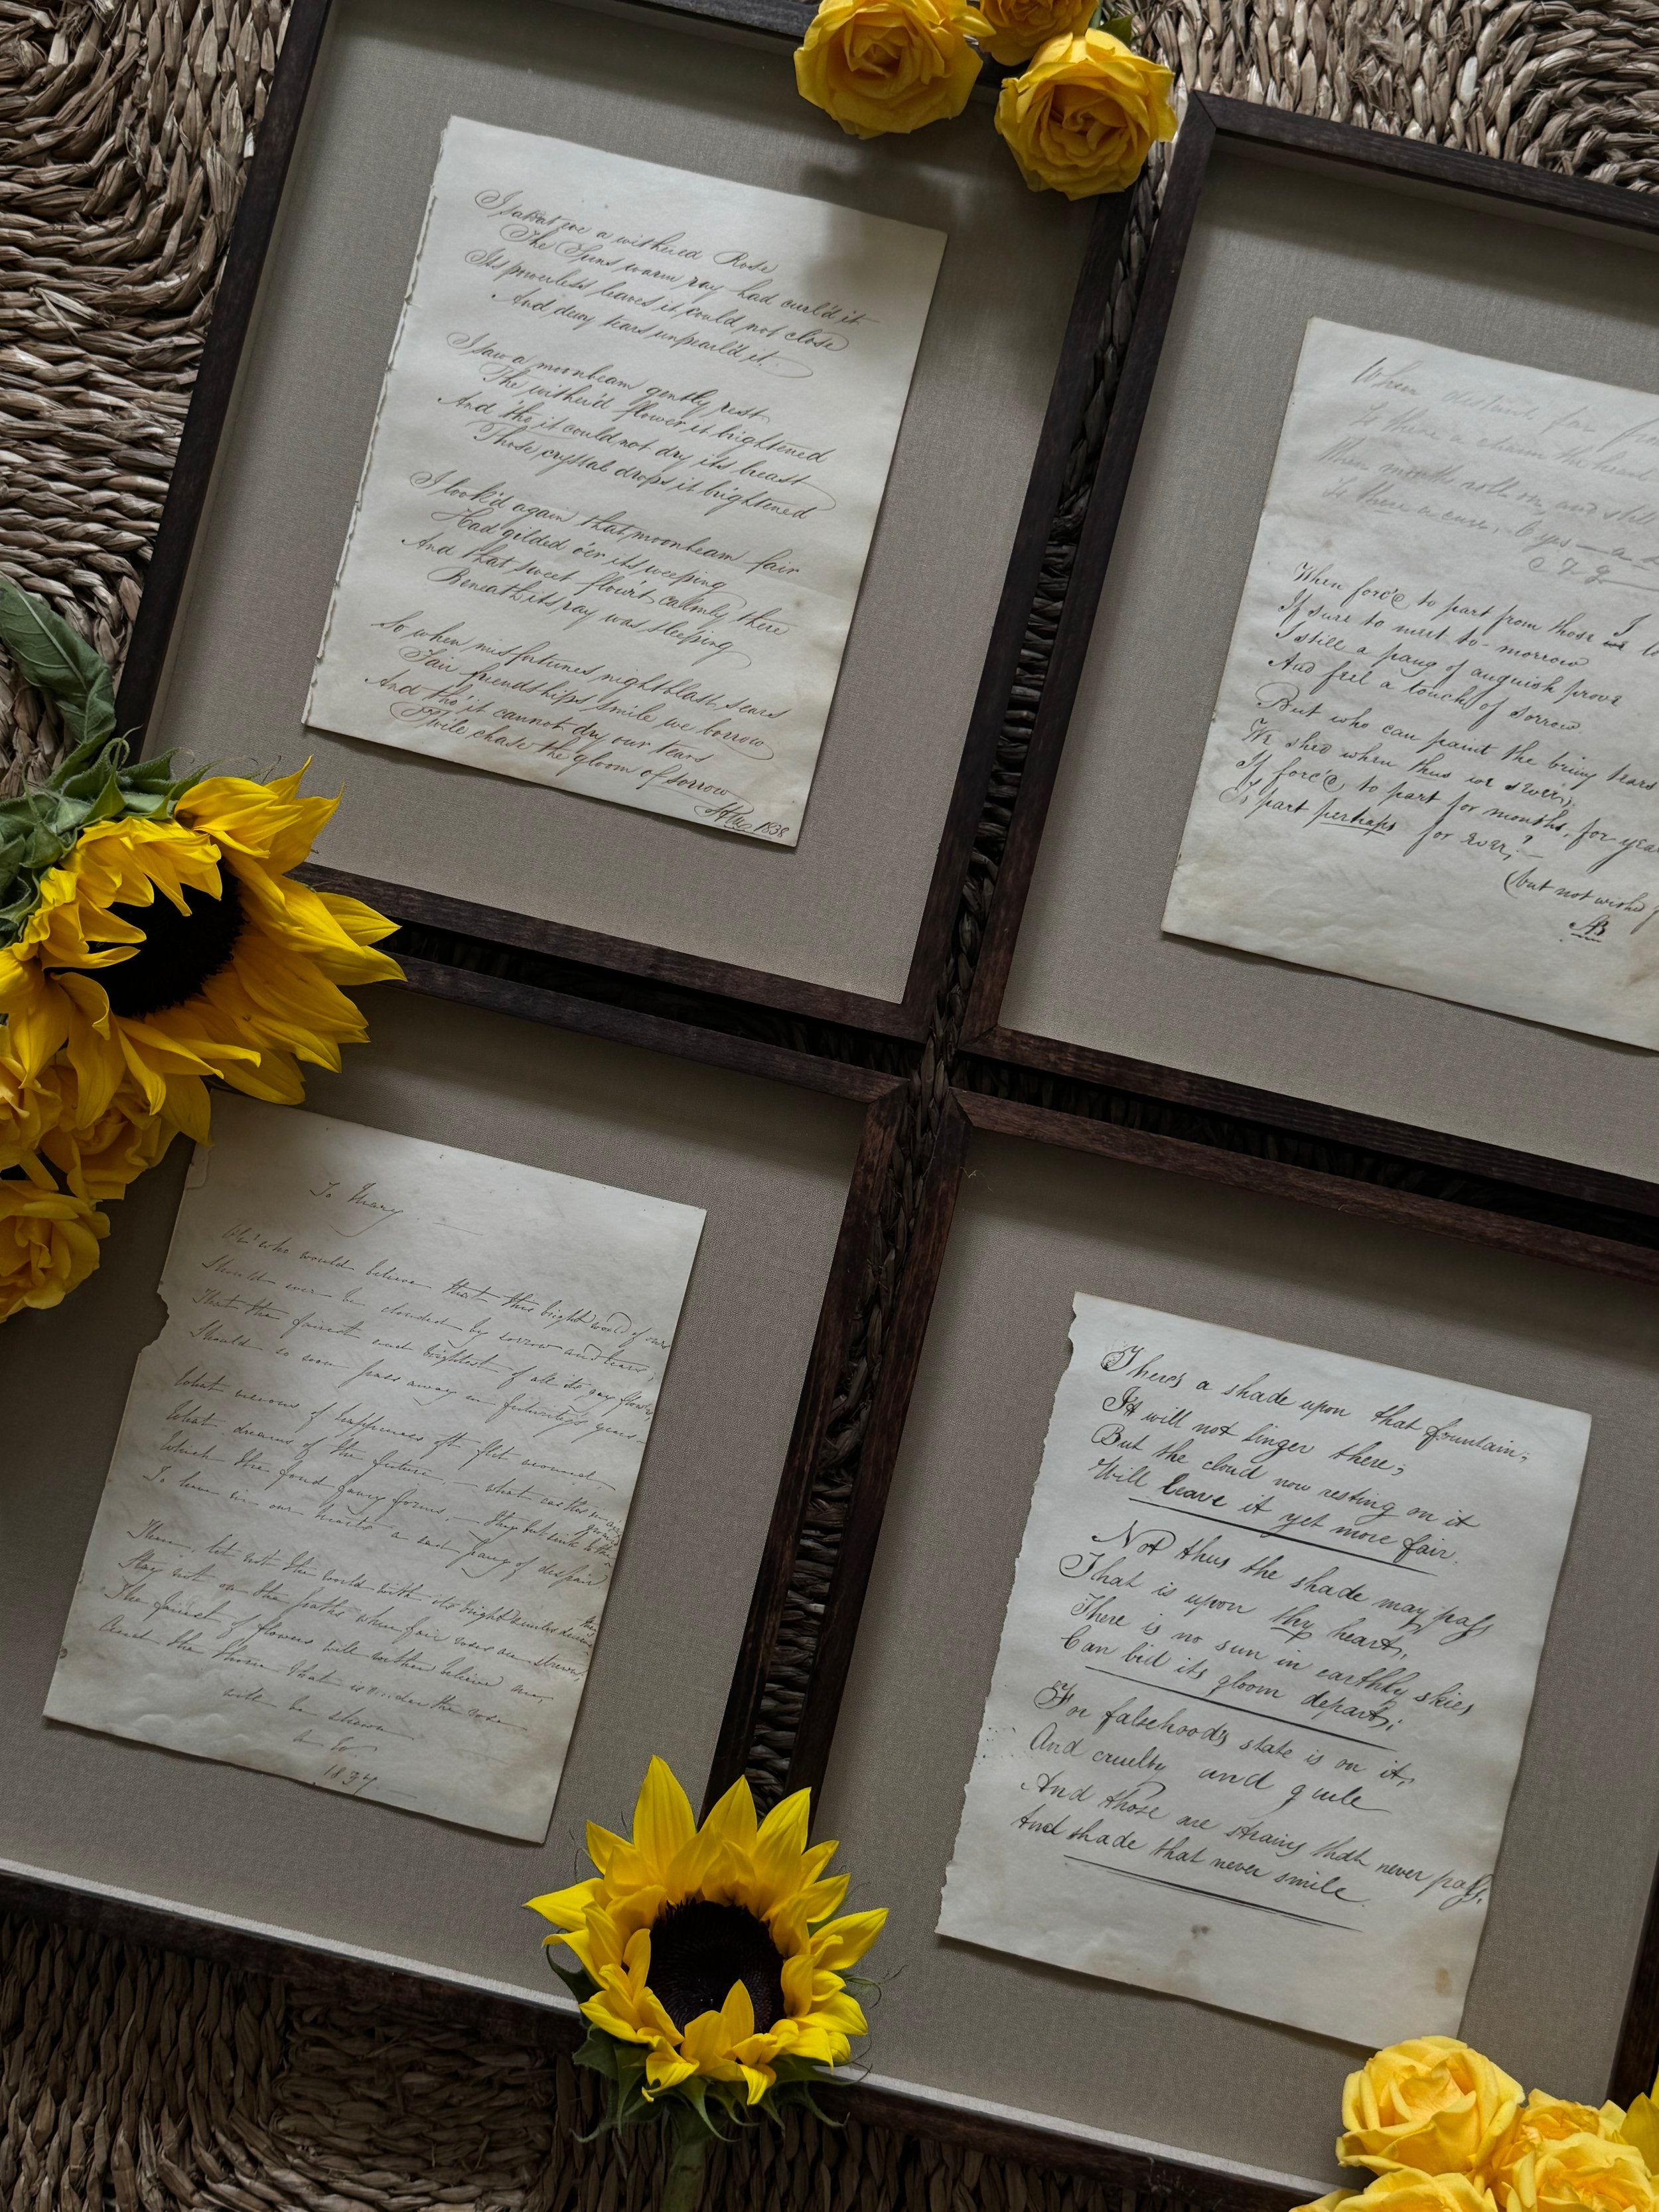 I saw a wither'd Rose
The Suns warm ray had curl'd it
Its powerless leaves it could not close
And dewy tears unpearl'd it.
I saw a moonbeam gently rest
The wither'd flower it brightened
And tho it could not dry its breast
Those crystal drops it brightened
I look'd again that moonbeam fair
Had gilded o'er its weeping
And that sweet flow'r calmly there
Beneath its ray was sleeping
So when misfortunes nightblast sears
Fair friendships smile we borrow
And tho it cannot dry our tears
Twile chase the gloom of sorrow
1838
When far from
Is there a charm the heart
When months roll on, and still
Is there a cure, O yes — a
When forc'd to part from those we I lo
If sure to meet to-morrow
I still a pang of anguish prove
And feel a touch of sorrow
But who can paint the briny tears
We shed when thus we sever,
If forc'd to part for months, for yea
To part perhaps for ever?—
(but not wish'd
AB
To Mary.
Oh! who would believe that this bright world of ours
Should ever be clouded by sorrow and tears,
That the fairest and brightest of all its gay flowers
Should so soon pass away in futurity's years—
What visions of happiness oft flit around,
What dreams of the future, — what castles in air
Which the fond fancy forms, — they but sink to the ground
To leave in our hearts a sad pang of despair
Then, let not the world with its bright smiles deceive thee
Stay not on the paths where fair roses are strewn,
The fairest of flowers will wither believe me,
And the thorn that is under the rose
will be shewn
1837.
There's a shade upon that fountain;
It will not linger there;
But the cloud now resting on it
Will leave it yet more fair.
Not thus the shade may pass
That is upon thy heart,
There is no sun in earthly skies
Can bid its gloom depart;
For falsehood's state is on it,
And cruelty and guile
And those are strains that never pass,
And shade that never smile.